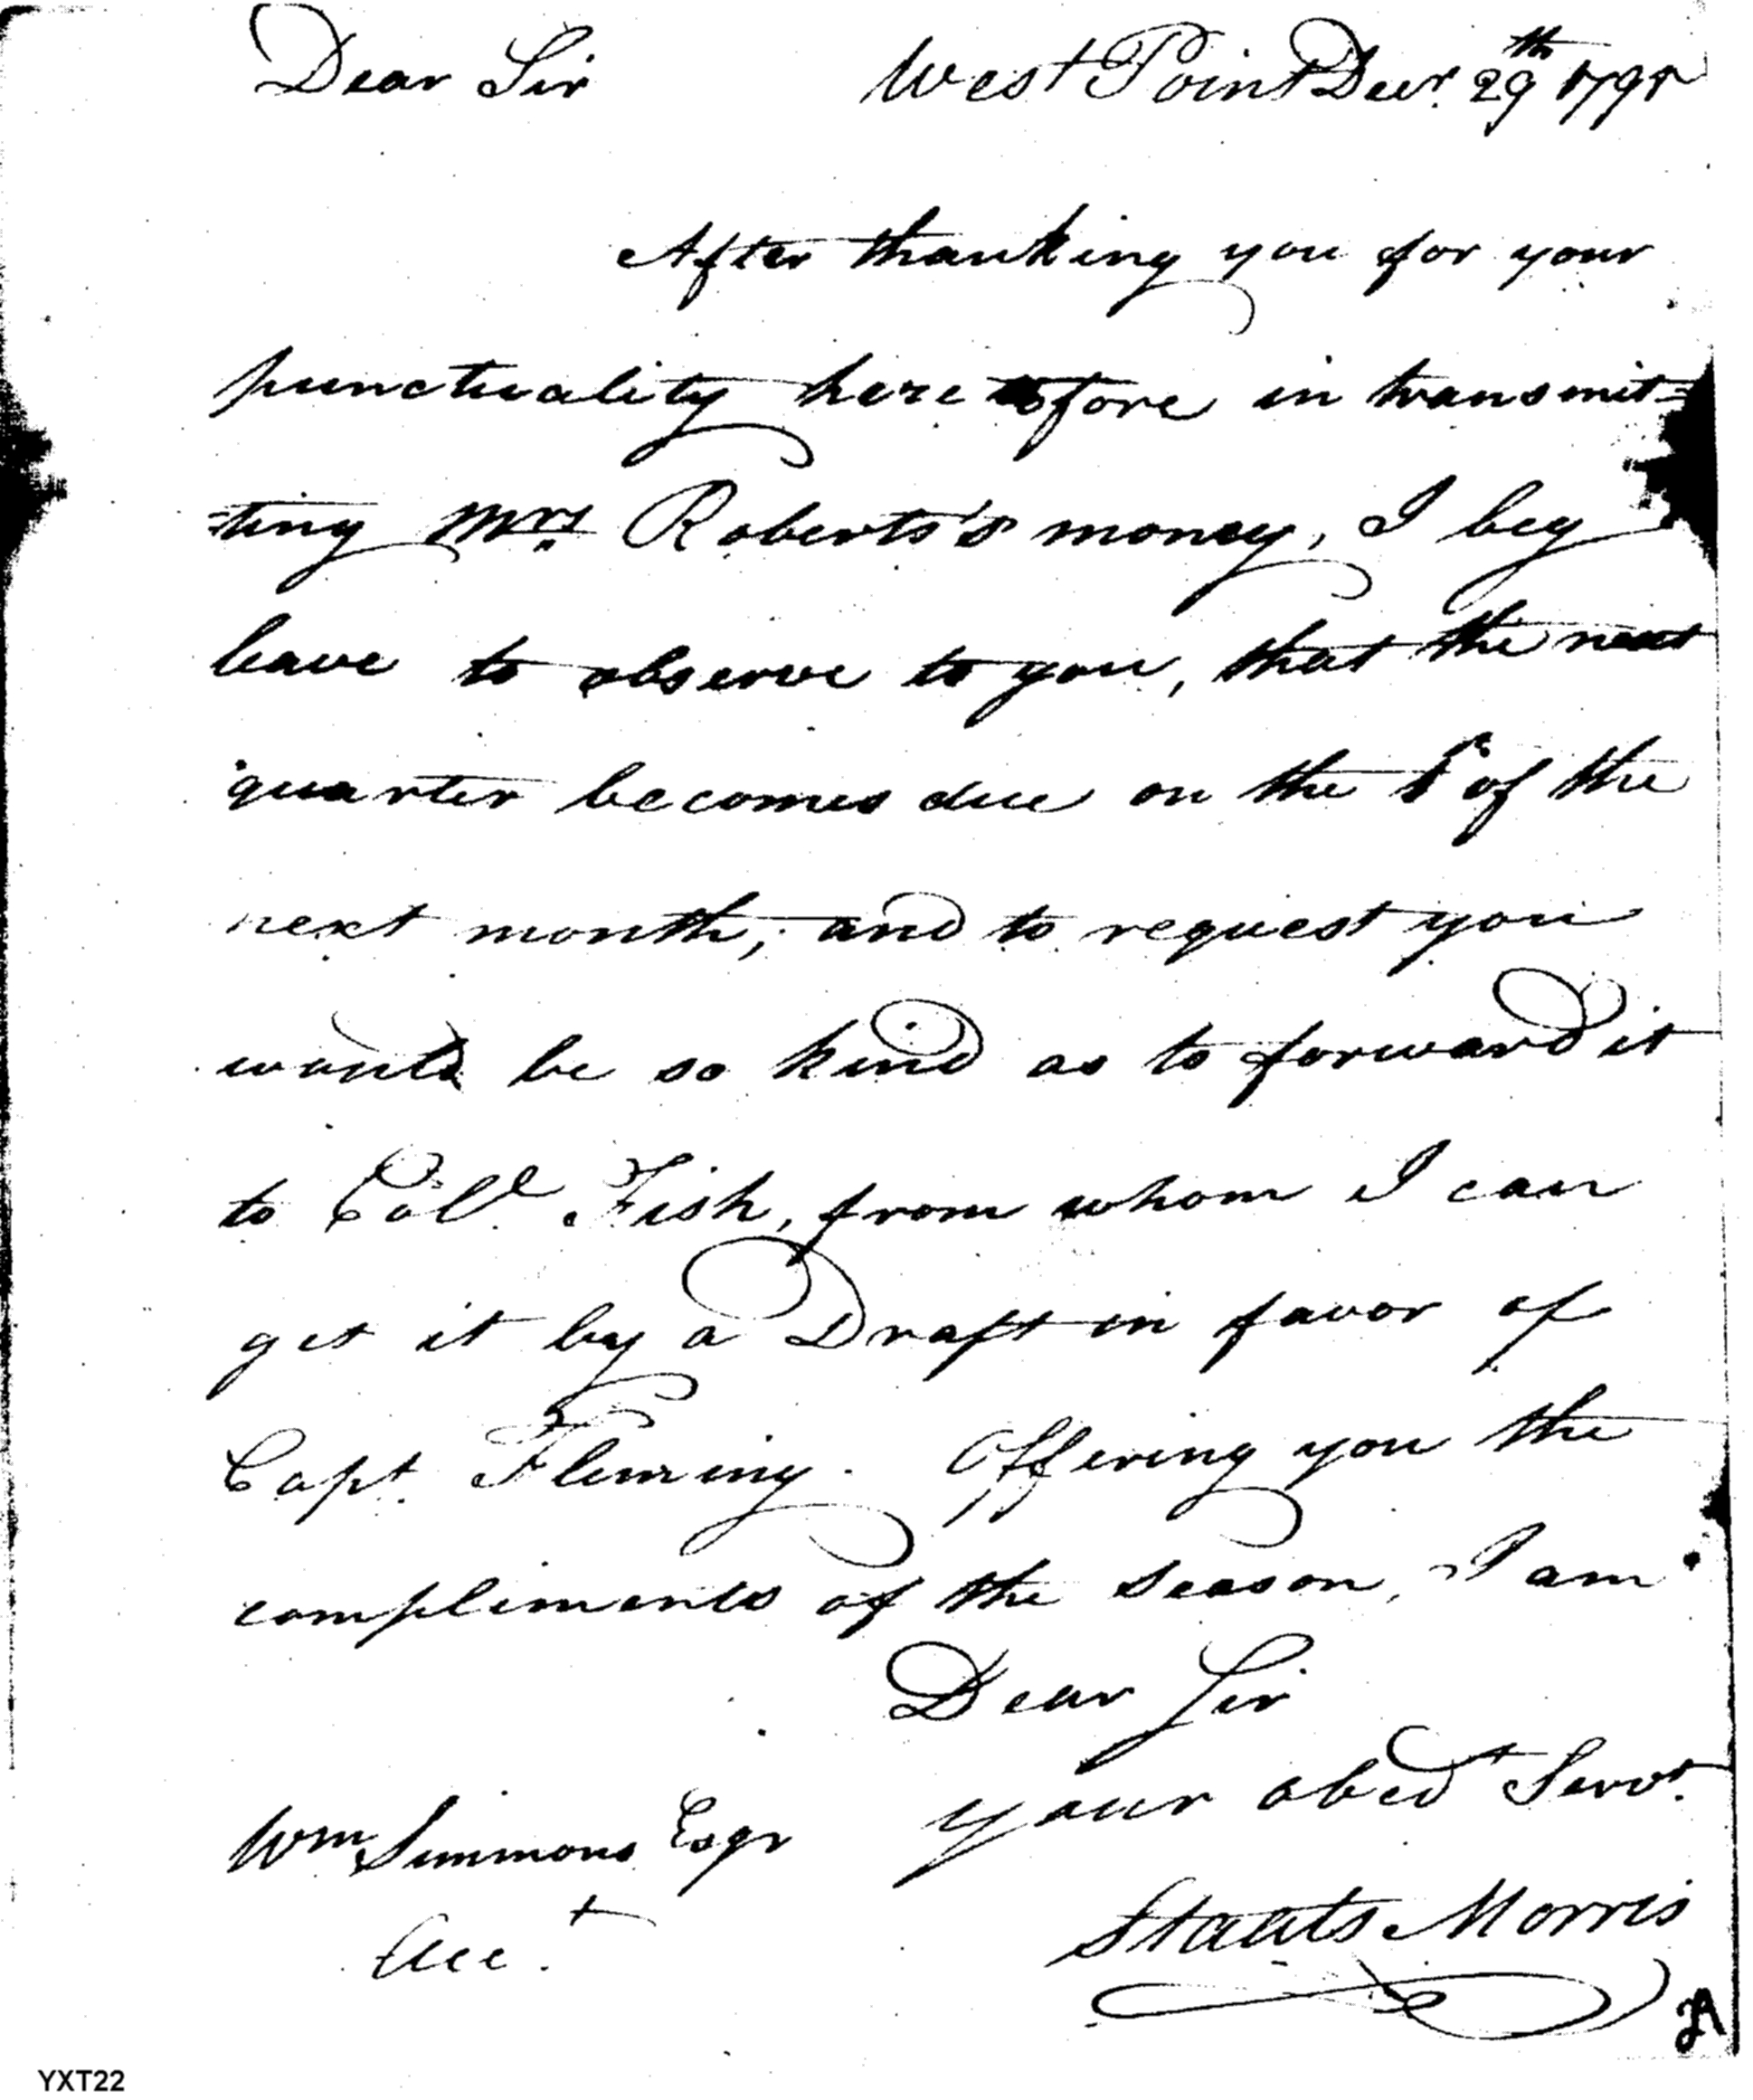 Dear Sir West Point Decr. 29th 1791
After thanking you for your
punctuality heretofore in transmit=
=ting Mrs. Roberts's money, I beg
leave to observe to you, that the next
quarter becomes due on the 1st of the
next month; and to request you
would be so kind as to forward it
to Col.o Fish, from whom I can
get it by a Draft in favor of
Capt. Fleming. Offering you the
compliments of the season, I am
Dear Sir
your obedt Servt.
Wm Simmons Esqr
Acct.
Staats Morris
YXT22